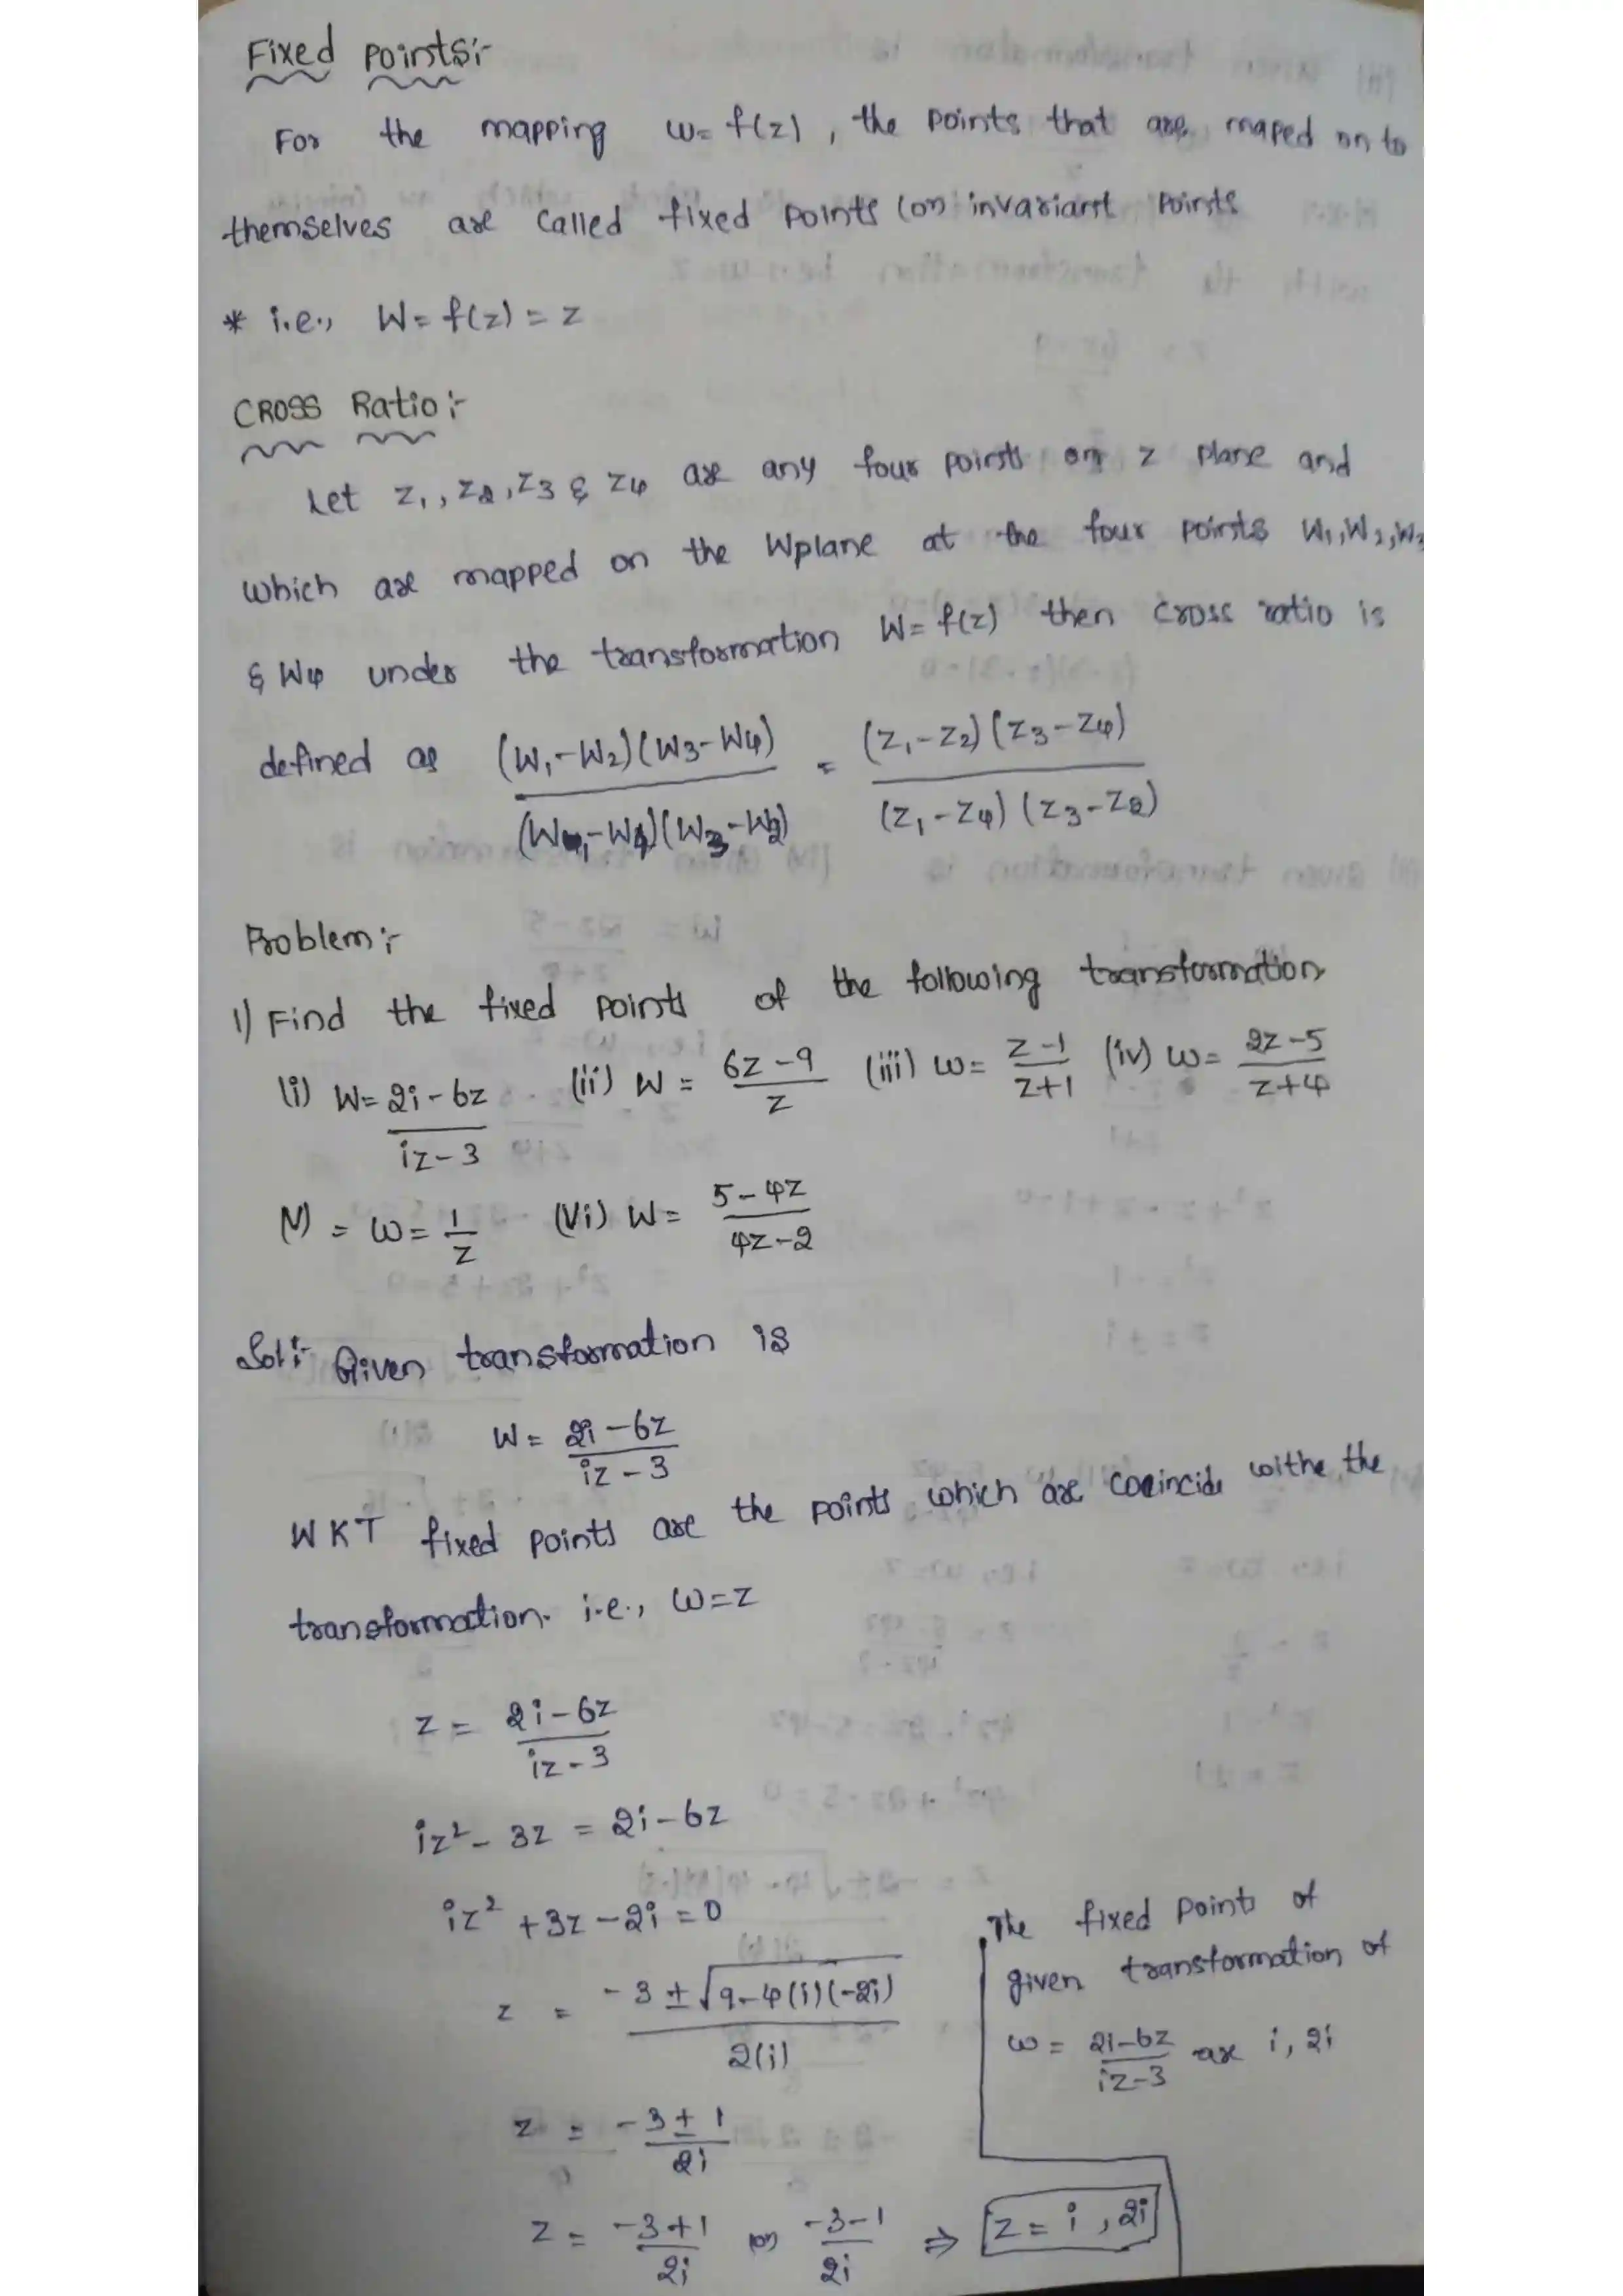 Fixed Points:-
For the mapping w= f(z), the points that are maped on to
themselves are called fixed points (or) invariant points
* i.e., W= f(z) = z
CROSS Ratio:-
Let z₁, z₂, z₃ & z₄ are any four points on z plane and
which are mapped on the Wplane at the four points W₁, W₂, W₃
& W₄ under the transformation W= f(z) then cross ratio is
defined as (W₁-W₂)(W₃-W₄)/(W₁-W₄)(W₃-W₂) = (z₁-z₂)(z₃-z₄)/(z₁-z₄)(z₃-z₂)
Problem:-
1) Find the fixed points of the following transformation
(i) W= 2i-6z/iz-3 (ii) W = 6z-9/z (iii) w= z-1/z+1 (iv) w= 2z-5/z+4
(V) = w= 1/z (Vi) W= 5-4z/4z-2
Sol:- Given transformation is
W= 2i-6z/iz-3
WKT fixed points are the points which are coincide withe the
transformation. i.e., w=z
z = 2i-6z/iz-3
iz²-3z = 2i-6z
iz²+3z-2i=0
z = -3±√9-4(i)(-2i)/2(i)
z = -3±1/2i
z = -3+1/2i (or) -3-1/2i ⇒ z = i, 2i
The fixed points of
given transformation of
w = 2i-6z/iz-3 are i, 2i